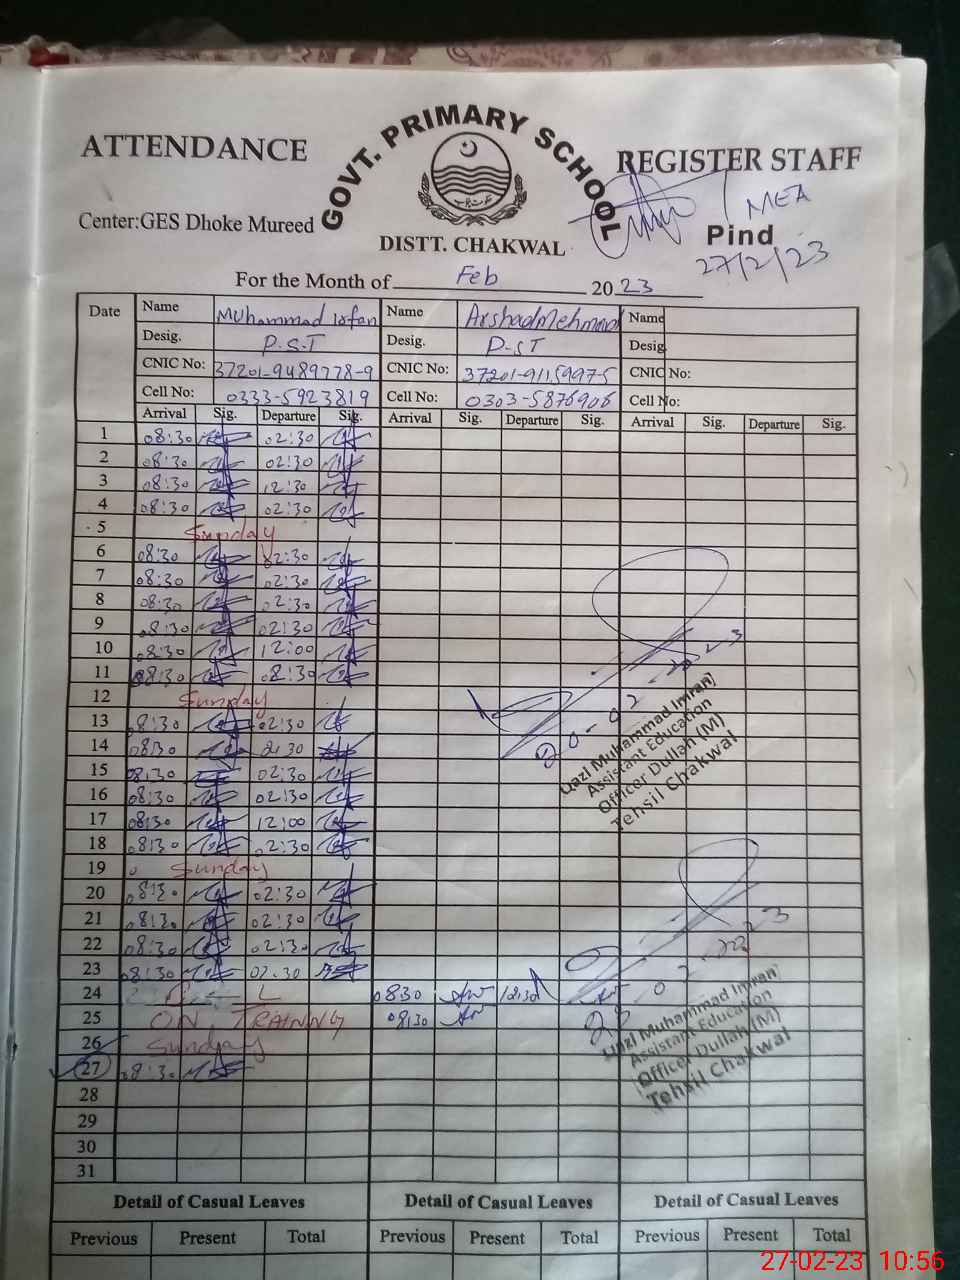 GOVT. PRIMARY SCHOOL
ATTENDANCE REGISTER STAFF
MEA
Center:GES Dhoke Mureed
Pind
DISTT. CHAKWAL
27/2/23
For the Month of Feb 2023
Date Name Muhammad Irfan Name Arshad Mehmood Name
Desig. P.S.T Desig. P-ST Desig
CNIC No: 37201-9489778-9 CNIC No: 37201-9115997-5 CNIC No:
Cell No: 0333-5923819 Cell No: 0303-5876906 Cell No:
Arrival Sig. Departure Sig. Arrival Sig. Departure Sig. Arrival Sig. Departure Sig.
1 08:30 02:30
2 08:30 02:30
3 08:30 12:30
4 08:30 02:30
5 Sunday
6 08:30 02:30
7 08:30 02:30
8 08:30 02:30
9 08:30 02:30
10 08:30 12:00
11 08:30 08:30
12 Sunday
13 08:30 02:30
14 08:30 2:30
15 08:30 02:30
16 08:30 02:30
17 08:30 12:00
18 08:30 02:30
19 Sunday
20 08:30 02:30
21 08:30 02:30
22 08:30 02:30
23 08:30 02:30
24 L 0830 12:30
25 ON TRAINNG 08:30
26 Sunday
27 08:30
28
29
30
31
-02-2023
Qazi Muhammad Imran
Assistant Education
Officer Dullah (M)
Tehsil Chakwal
Qazi Muhammad Imran
Assistant Education
Officer Dullah (M)
Tehsil Chakwal
Detail of Casual Leaves Detail of Casual Leaves Detail of Casual Leaves
Previous Present Total Previous Present Total Previous Present Total
27-02-23 10:56